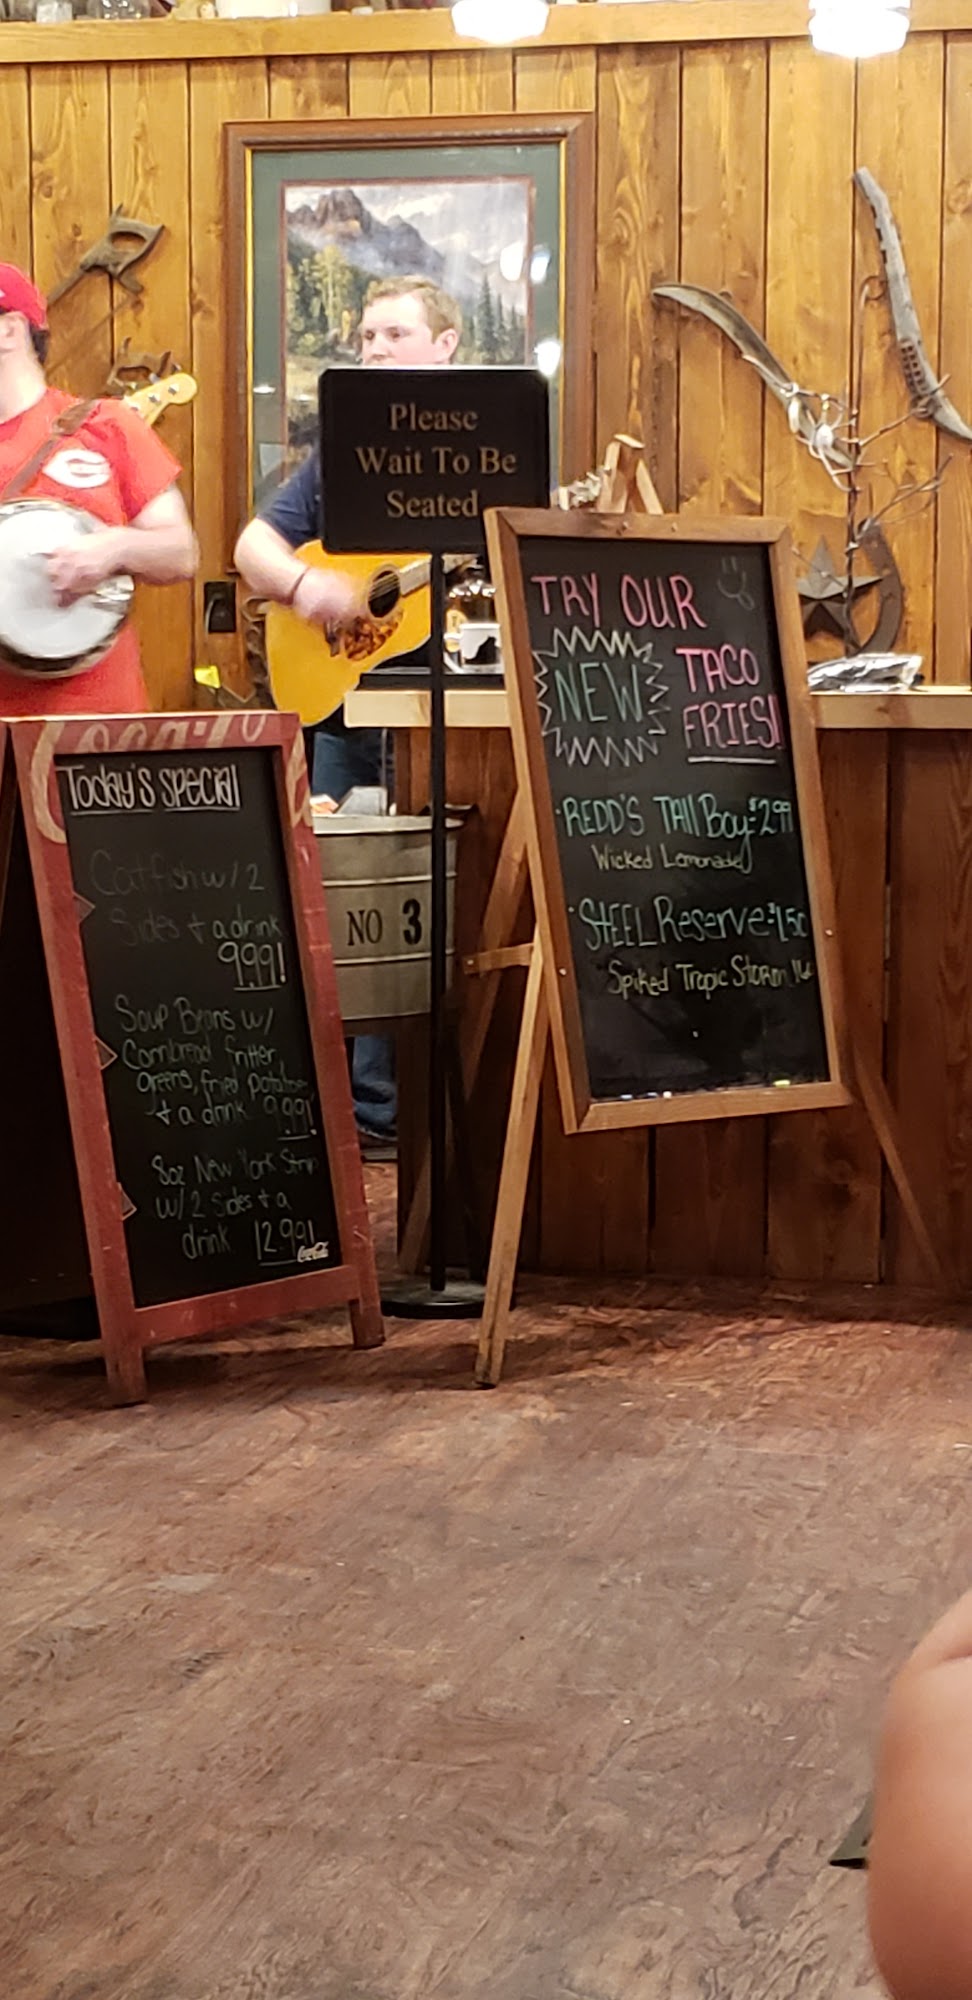 Please
Wait To Be
Seated
TRY OUR
NEW
TACO
FRIES!
•REDD'S TAll Boy $2.99
Wicked Lemonade
•STEEL Reserve $1.50
Spiked Tropic Storm
Coca-Co
Today's special
Catfish w/ 2
Sides + a drink
9.99!
Soup Beans w/
Cornbread fritter,
greens, fried potatoes
+ a drink 9.99!
8oz New York Strip
w/ 2 Sides + a
drink 12.99!
Coca-Cola
NO 3
C